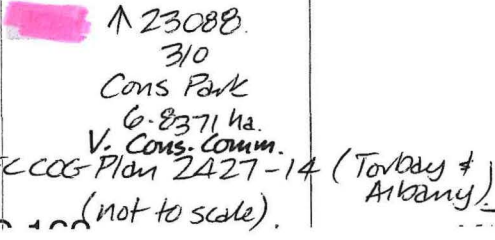 ↑ 23088.
310
Cons Park
6.8371 ha.
V. Cons. Comm.
CCOG Plan 2427-14 (Torbay &
Albany)
(not to scale).